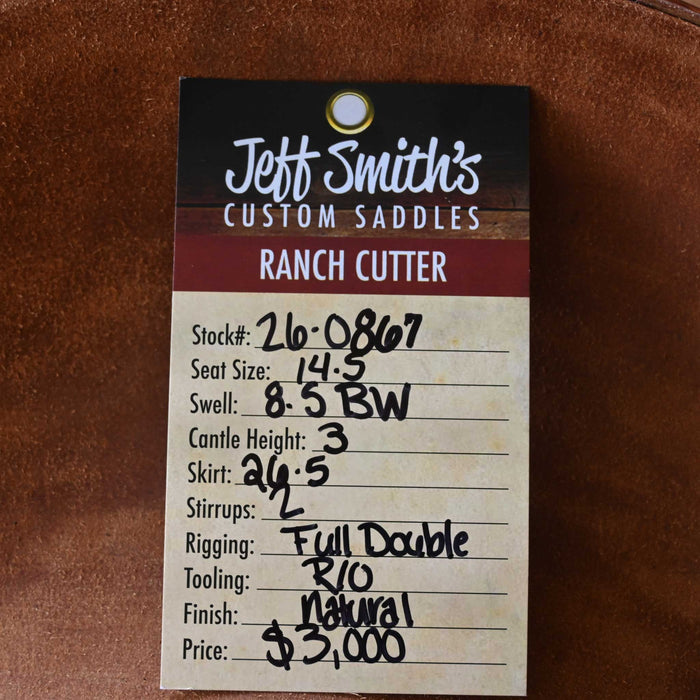 Jeff Smith's
CUSTOM SADDLES
RANCH CUTTER
Stock#: 26-0867
Seat Size: 14.5
Swell: 8.5 BW
Cantle Height: 3
Skirt: 26.5
Stirrups: 2
Rigging: Full Double
Tooling: R/O
Finish: natural
Price: $3,000